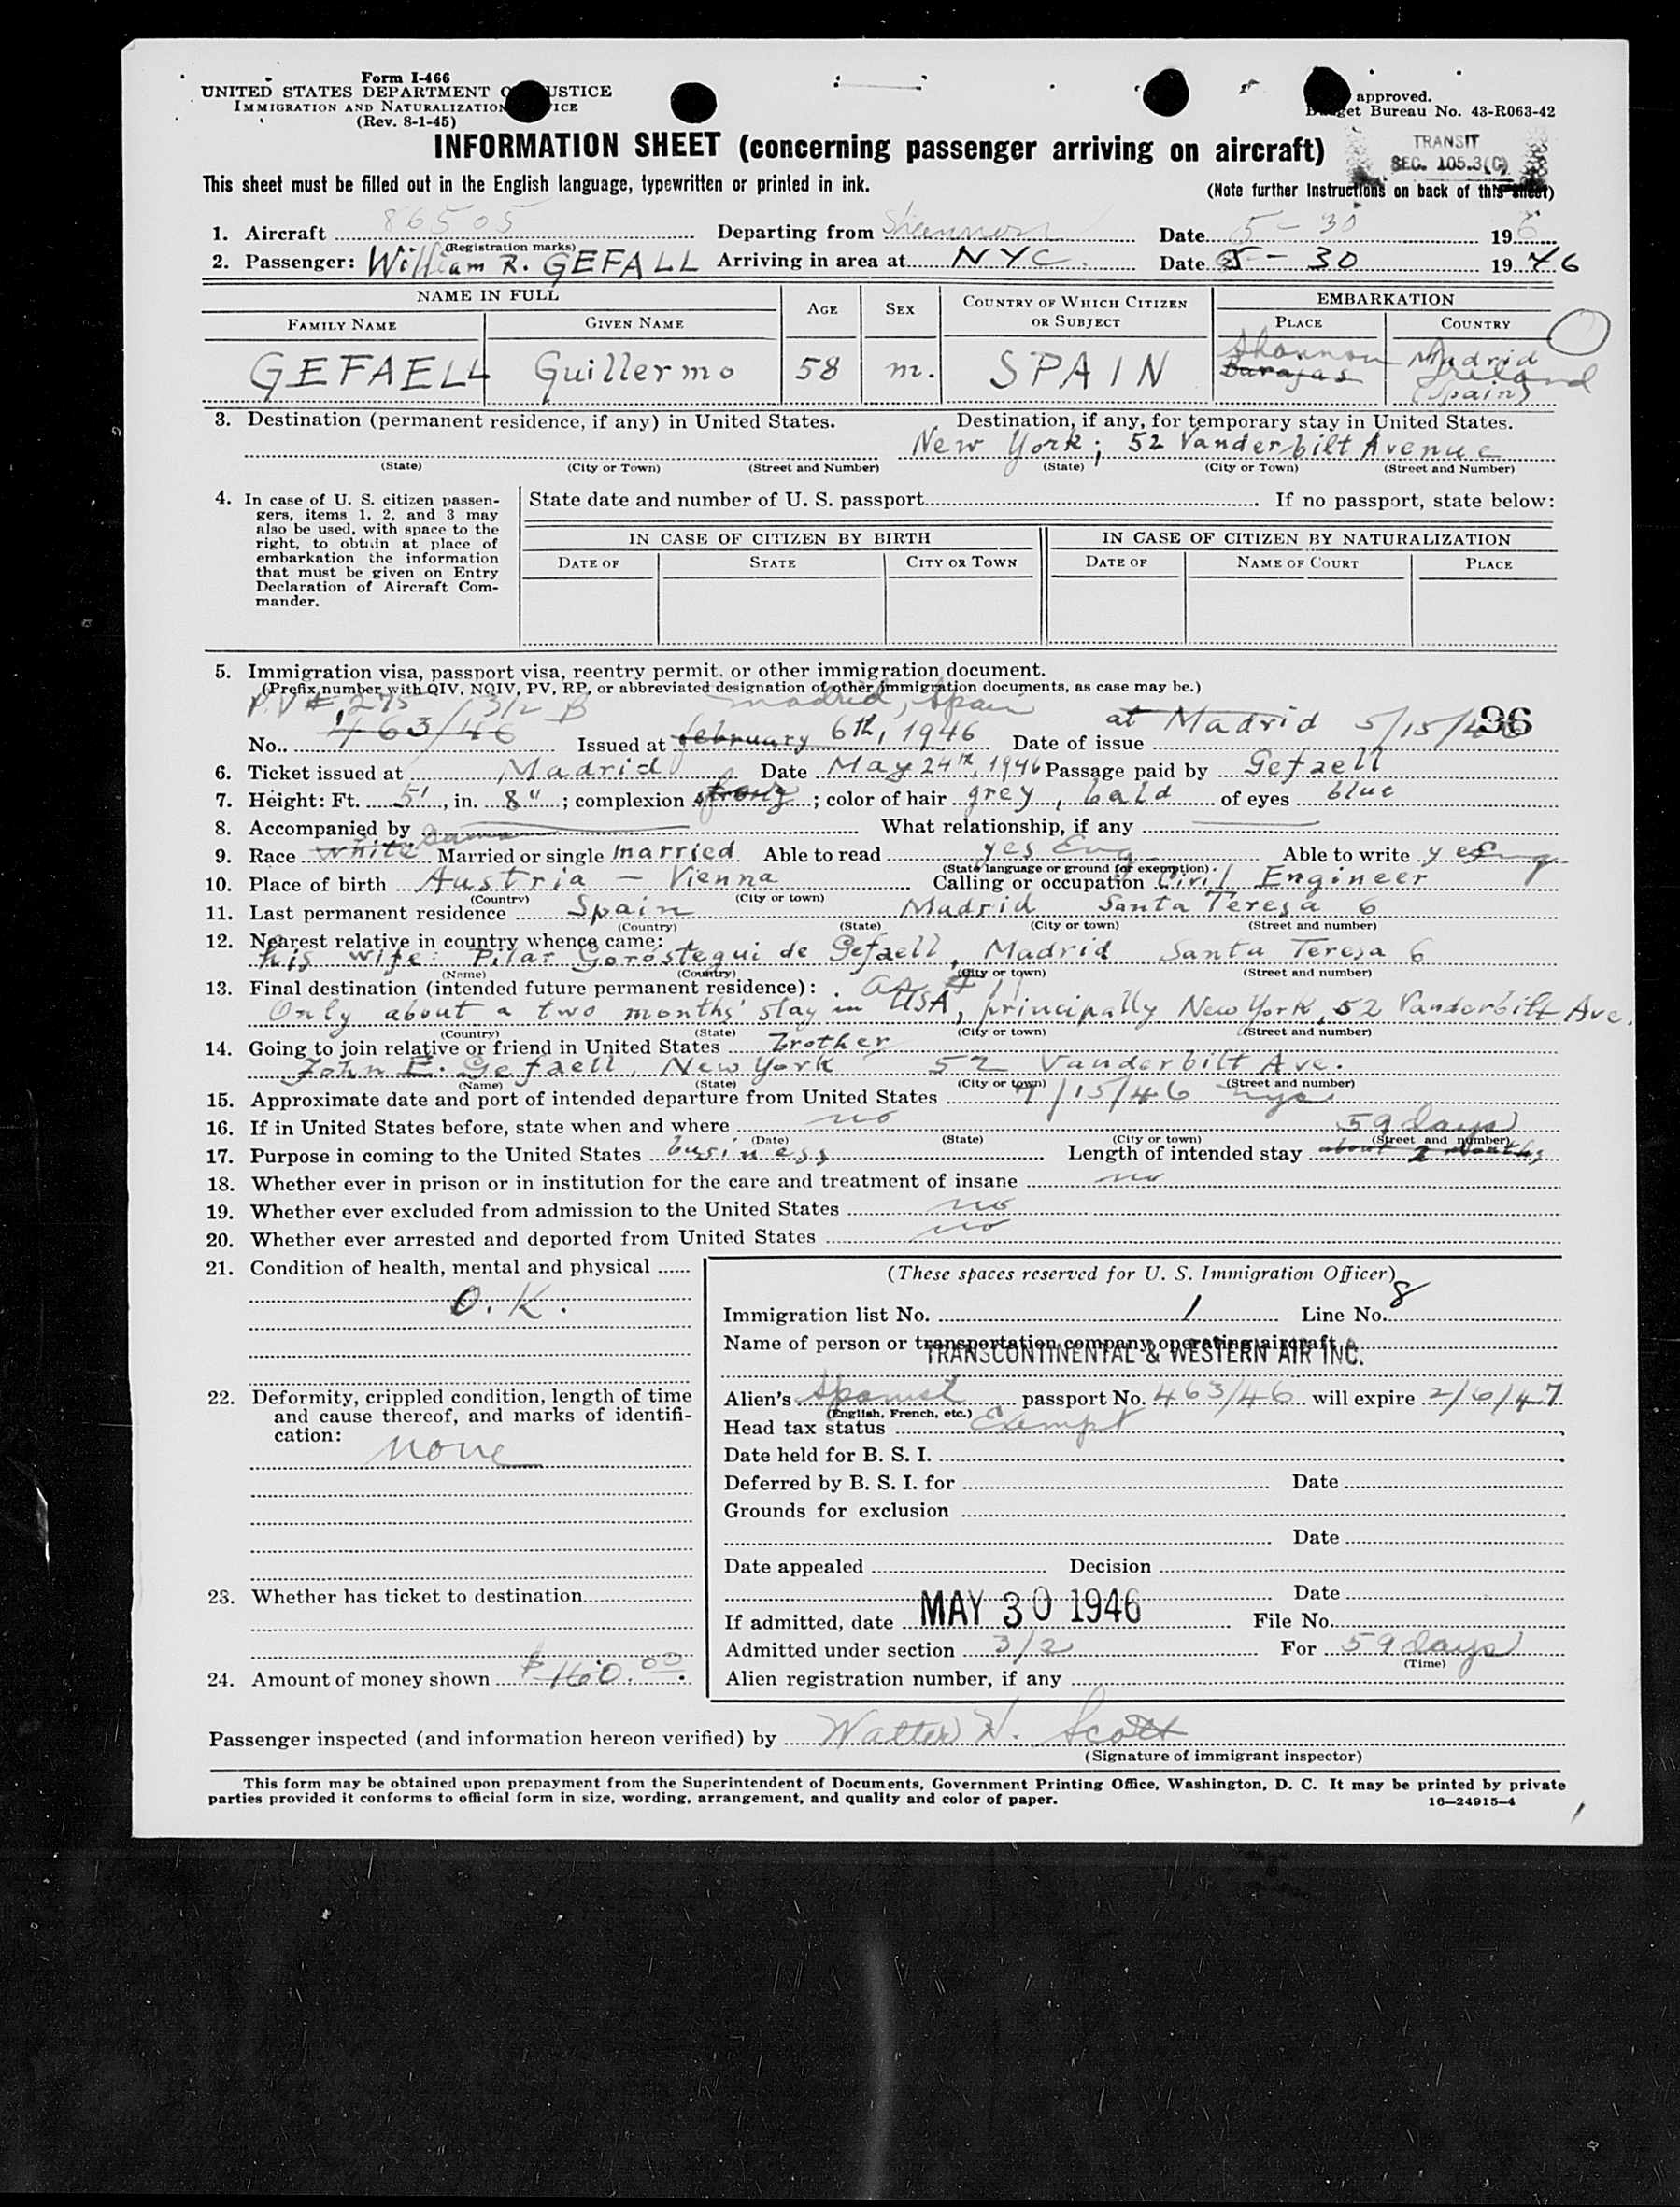 Form I-466
UNITED STATES DEPARTMENT O USTICE
IMMIGRATION AND NATURALIZATION ICE
(Rev. 8-1-45)
approved.
Budget Bureau No. 43-R063-42
INFORMATION SHEET (concerning passenger arriving on aircraft)
TRANSIT
SEC. 105.3(C)
This sheet must be filled out in the English language, typewritten or printed in ink.
(Note further Instructions on back of this sheet)
1. Aircraft 86505 Departing from Shannon Date 5-30 196
(Registration marks)
2. Passenger: William R. GEFALL Arriving in area at NYC. Date 5-30 1946
NAME IN FULL AGE SEX COUNTRY OF WHICH CITIZEN OR SUBJECT EMBARKATION
FAMILY NAME GIVEN NAME PLACE COUNTRY
Shannon Madrid
GEFAELL Guillermo 58 m. SPAIN Barajas Ireland
(Spain)
3. Destination (permanent residence, if any) in United States. Destination, if any, for temporary stay in United States.
New York; 52 Vanderbilt Avenue
(State) (City or Town) (Street and Number) (State) (City or Town) (Street and Number)
4. In case of U. S. citizen passengers, items 1, 2, and 3 may also be used, with space to the right, to obtain at place of embarkation the information that must be given on Entry Declaration of Aircraft Commander.
State date and number of U. S. passport If no passport, state below:
IN CASE OF CITIZEN BY BIRTH IN CASE OF CITIZEN BY NATURALIZATION
DATE OF STATE CITY OR TOWN DATE OF NAME OF COURT PLACE
5. Immigration visa, passport visa, reentry permit, or other immigration document.
(Prefix number with QIV, NQIV, PV, RP, or abbreviated designation of other immigration documents, as case may be.)
PV # 275 3/2 B Madrid, Spain
No. 463/46 Issued at february 6th, 1946 Date of issue at Madrid 5/15/46 36
6. Ticket issued at Madrid Date May 24th, 1946 Passage paid by Gefaell
7. Height: Ft. 5', in. 8"; complexion strong; color of hair grey, bald of eyes blue
8. Accompanied by What relationship, if any
9. Race white Married or single married Able to read yes Eng Able to write yes Eng
(State language or ground for exemption)
10. Place of birth Austria - Vienna Calling or occupation Civil Engineer
(Country) (City or town)
11. Last permanent residence Spain Madrid Santa Teresa 6
(Country) (State) (City or town) (Street and number)
12. Nearest relative in country whence came:
his wife: Pilar Gorostegui de Gefaell, Madrid Santa Teresa 6
(Name) (Country) (City or town) (Street and number)
13. Final destination (intended future permanent residence):
Only about a two months' stay in USA, principally New York, 52 Vanderbilt Ave.
(Country) (State) (City or town) (Street and number)
14. Going to join relative or friend in United States brother
John E. Gefaell, New York 52 Vanderbilt Ave.
(Name) (State) (City or town) (Street and number)
15. Approximate date and port of intended departure from United States 7/15/46 nyc
16. If in United States before, state when and where no 59 days
(Date) (State) (City or town) (Street and number)
17. Purpose in coming to the United States business Length of intended stay about 2 months
18. Whether ever in prison or in institution for the care and treatment of insane no
19. Whether ever excluded from admission to the United States no
20. Whether ever arrested and deported from United States no
21. Condition of health, mental and physical
O.K.
22. Deformity, crippled condition, length of time and cause thereof, and marks of identification:
None
23. Whether has ticket to destination
24. Amount of money shown $160.00
(These spaces reserved for U. S. Immigration Officer)
Immigration list No. 1 Line No. 8
Name of person or transportation company operating aircraft
TRANSCONTINENTAL & WESTERN AIR INC.
Alien's Spanish passport No. 463/46 will expire 2/6/47
(English, French, etc.)
Head tax status Exempt
Date held for B. S. I.
Deferred by B. S. I. for Date
Grounds for exclusion
Date
Date appealed Decision
Date
If admitted, date MAY 30 1946 File No.
Admitted under section 3/2 For 59 days
(Time)
Alien registration number, if any
Passenger inspected (and information hereon verified) by Walter H. Scott
(Signature of immigrant inspector)
This form may be obtained upon prepayment from the Superintendent of Documents, Government Printing Office, Washington, D. C. It may be printed by private
parties provided it conforms to official form in size, wording, arrangement, and quality and color of paper.
16—24915-4